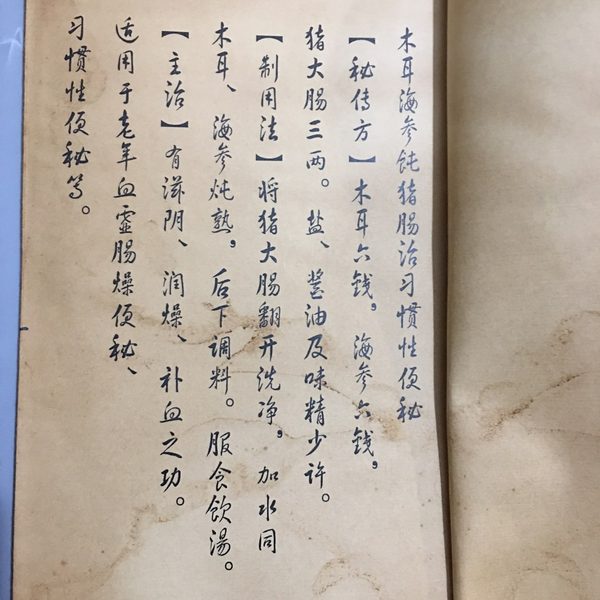 木耳海参饨猪腸治习慣性便秘
【秘传方】木耳六钱，海参六錢，
猪大腸三两。盐、醬油及味精少许。
【制用法】将猪大腸翻开洗净，加水同
木耳、海参炖熟，后下调料。服食飲湯。
【主治】有滋阴、润燥、补血之功。
适用于老年血虛腸燥便秘、
习慣性便秘等。